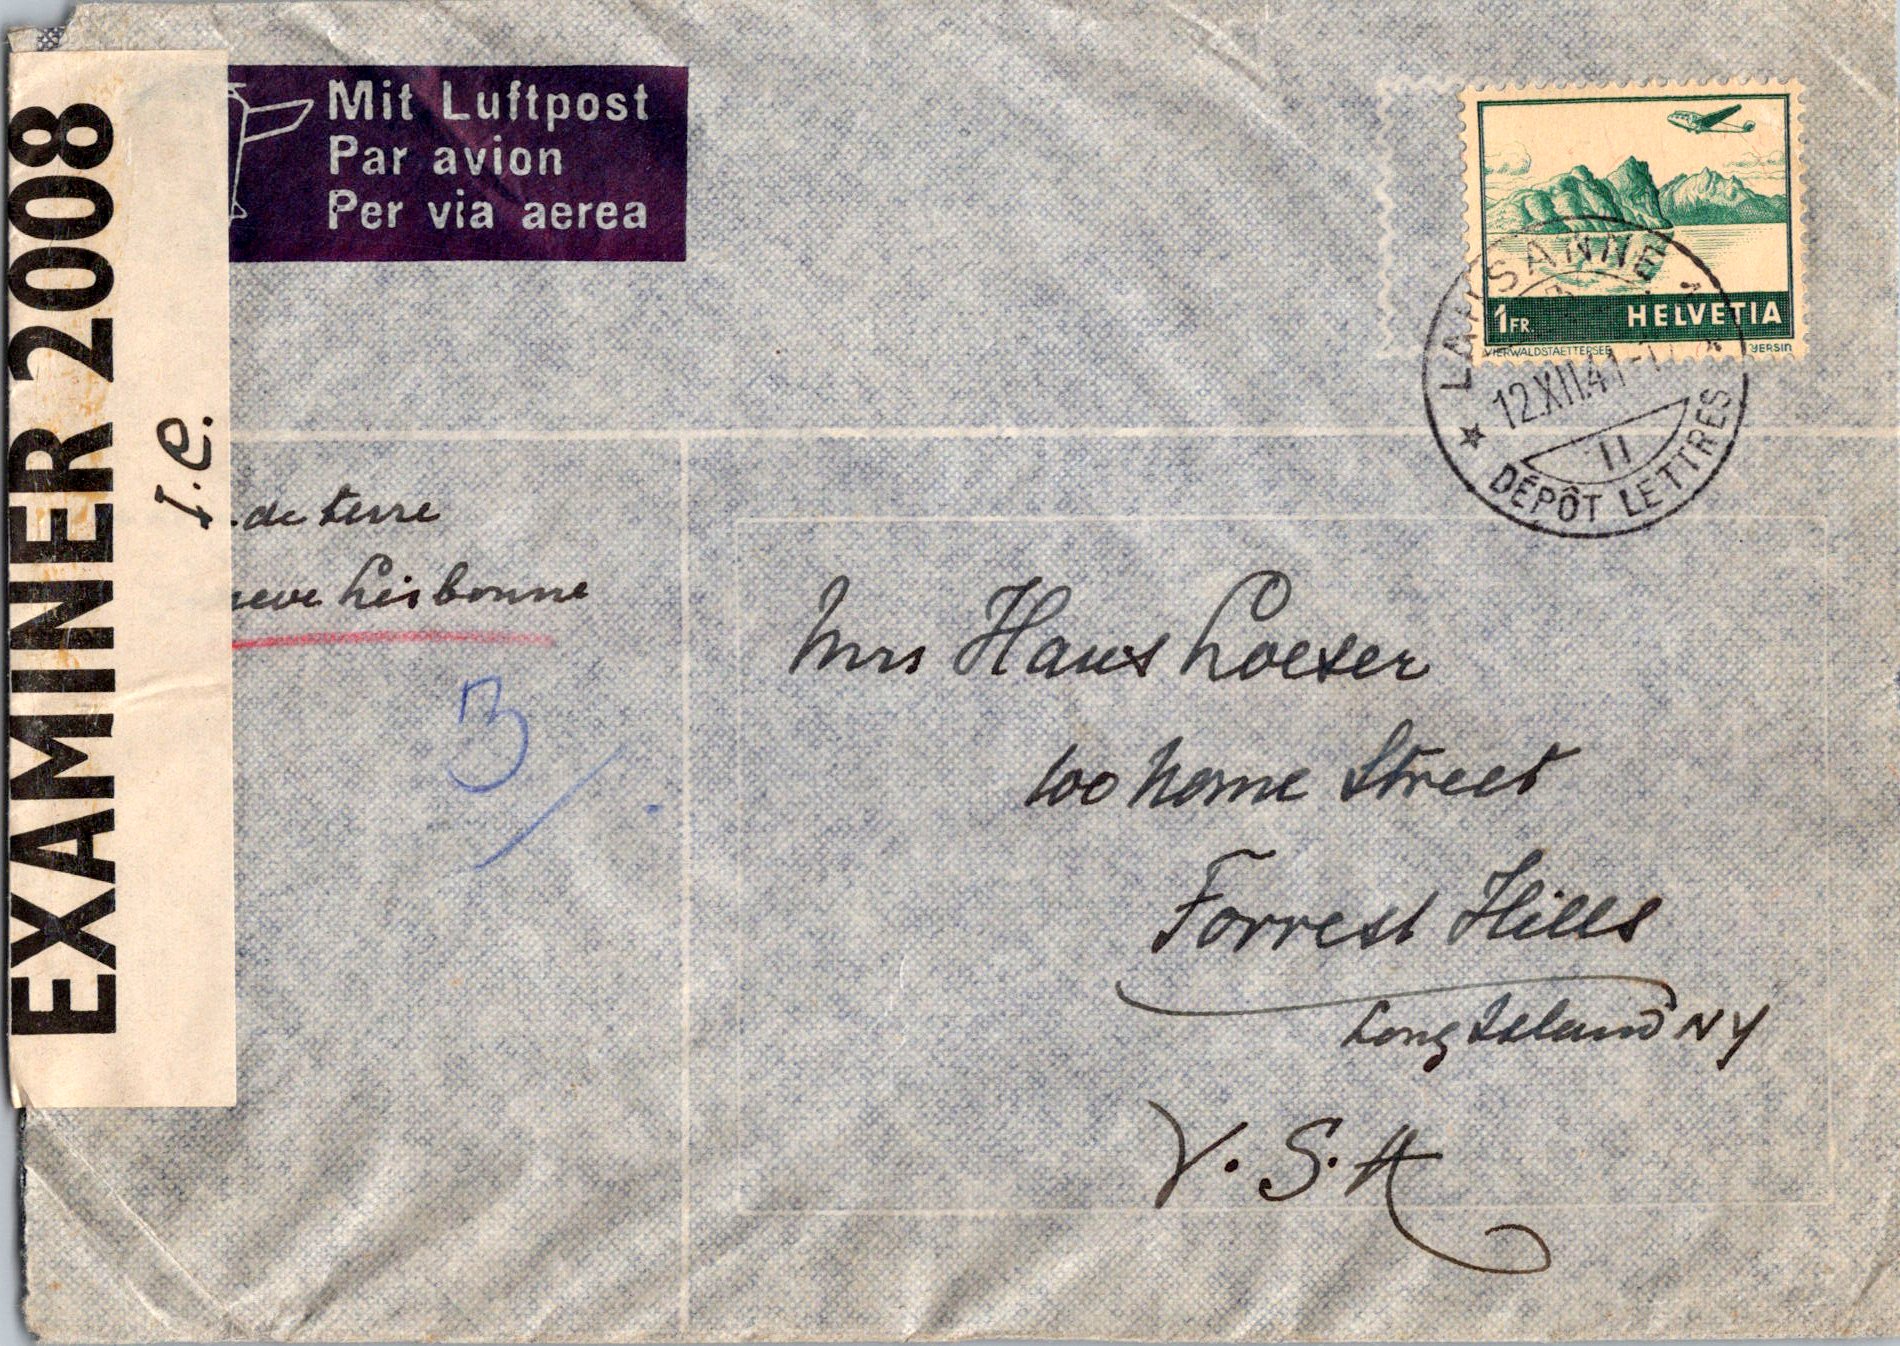 EXAMINER 2008
I.C.
Mit Luftpost
Par avion
Per via aerea
1 FR. HELVETIA
VIERWALDSTAETTERSEE YERSIN
LAUSANNE
12.XII.41
11
DÉPÔT LETTRES
de terre
neve Lisbonne
B
Mrs Hans Loeser
100 Street
Forrest Hills
Long Island NY
U.S.A